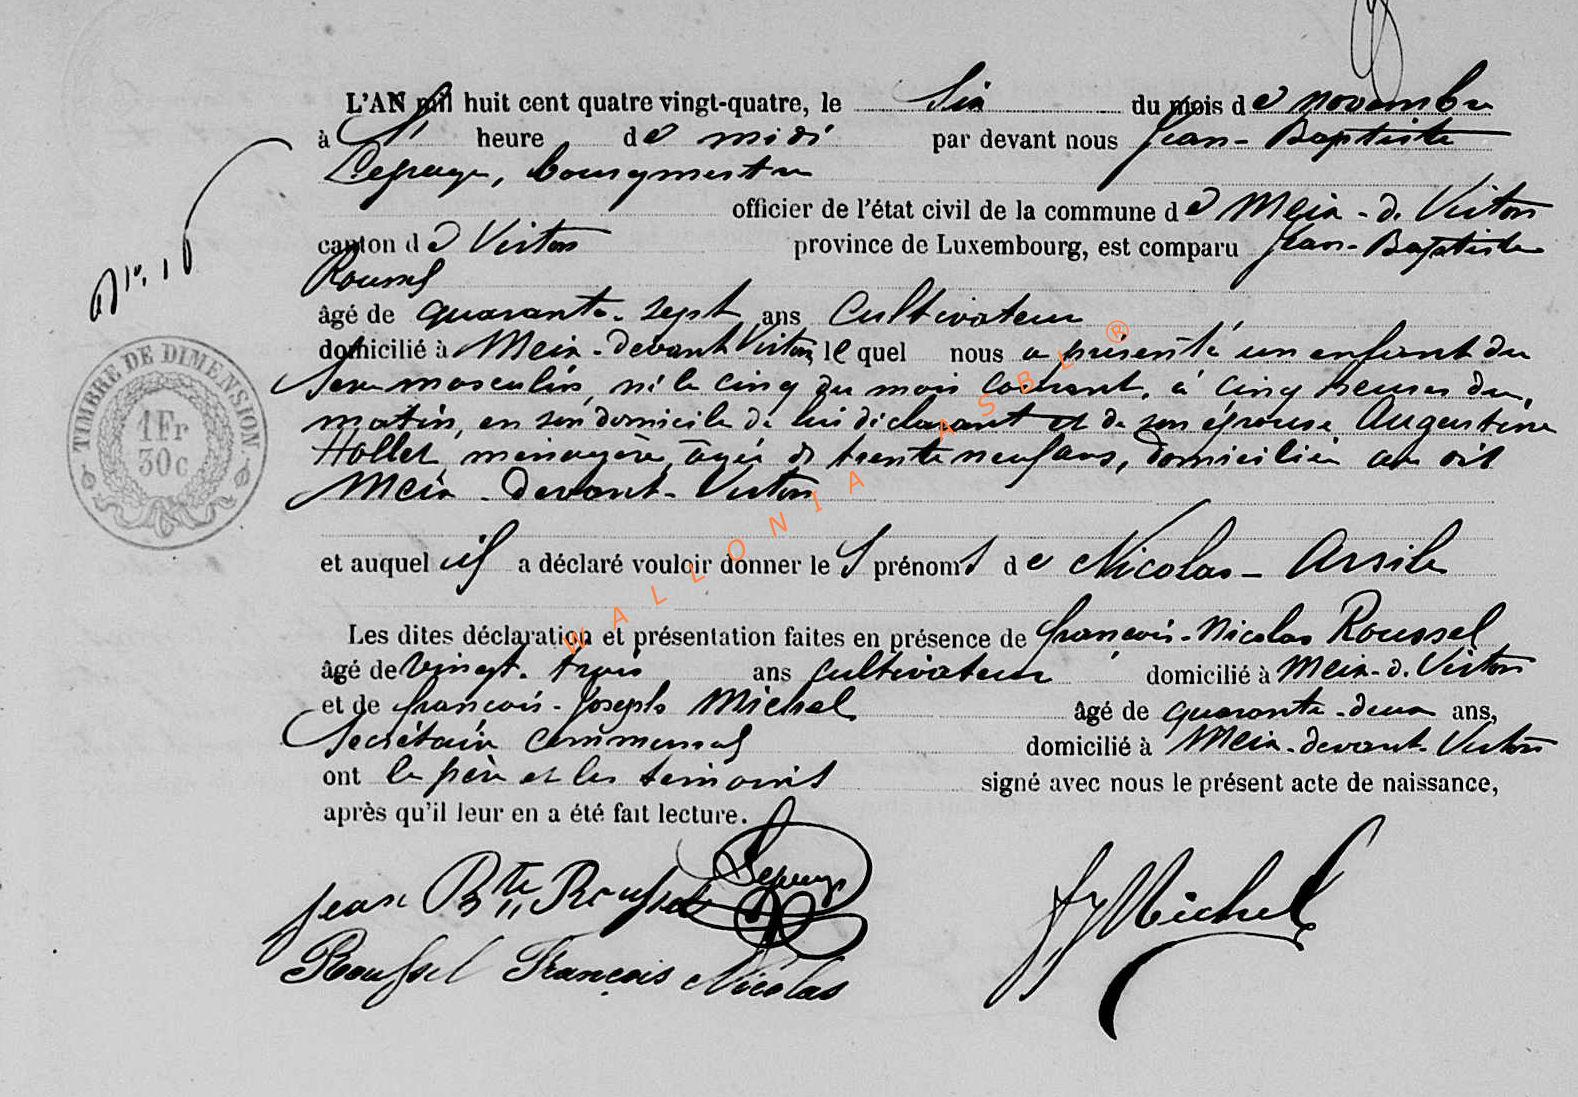 L'AN mil huit cent quatre vingt-quatre, le Six du mois de novembre
à heure de midi par devant nous Jean-Baptiste
Lepage, bourgmestre
officier de l'état civil de la commune de Meix-d. Virton
canton de Virton province de Luxembourg, est comparu Jean-Baptiste
Roussel
N°. 16
âgé de quarante-sept ans Cultivateur
domicilié à Meix-devant Virton, lequel nous a présenté un enfant du
sexe masculin, né le cinq du mois courant, à cinq heures du,
matin, en son domicile de lui déclarant et de son épouse Augustine
Hollet, ménagère, âgée de trente neuf ans, domiciliée au dit
Meix-devant-Virton
TIMBRE DE DIMENSION
1 Fr
30 c
et auquel il a déclaré vouloir donner les prénoms de Nicolas-Arsile
Les dites déclaration et présentation faites en présence de françois-Nicolas Roussel
âgé de vingt-trois ans cultivateur domicilié à Meix-d. Virton
et de françois-Joseph Michel âgé de quarante-deux ans,
Secrétaire communal domicilié à Meix-devant-Virton
ont le père et les témoins signé avec nous le présent acte de naissance,
après qu'il leur en a été fait lecture.
Lepage
Jean Bte Roussel
FJ Michel
Roussel François Nicolas
WALLONIA ASBL ®